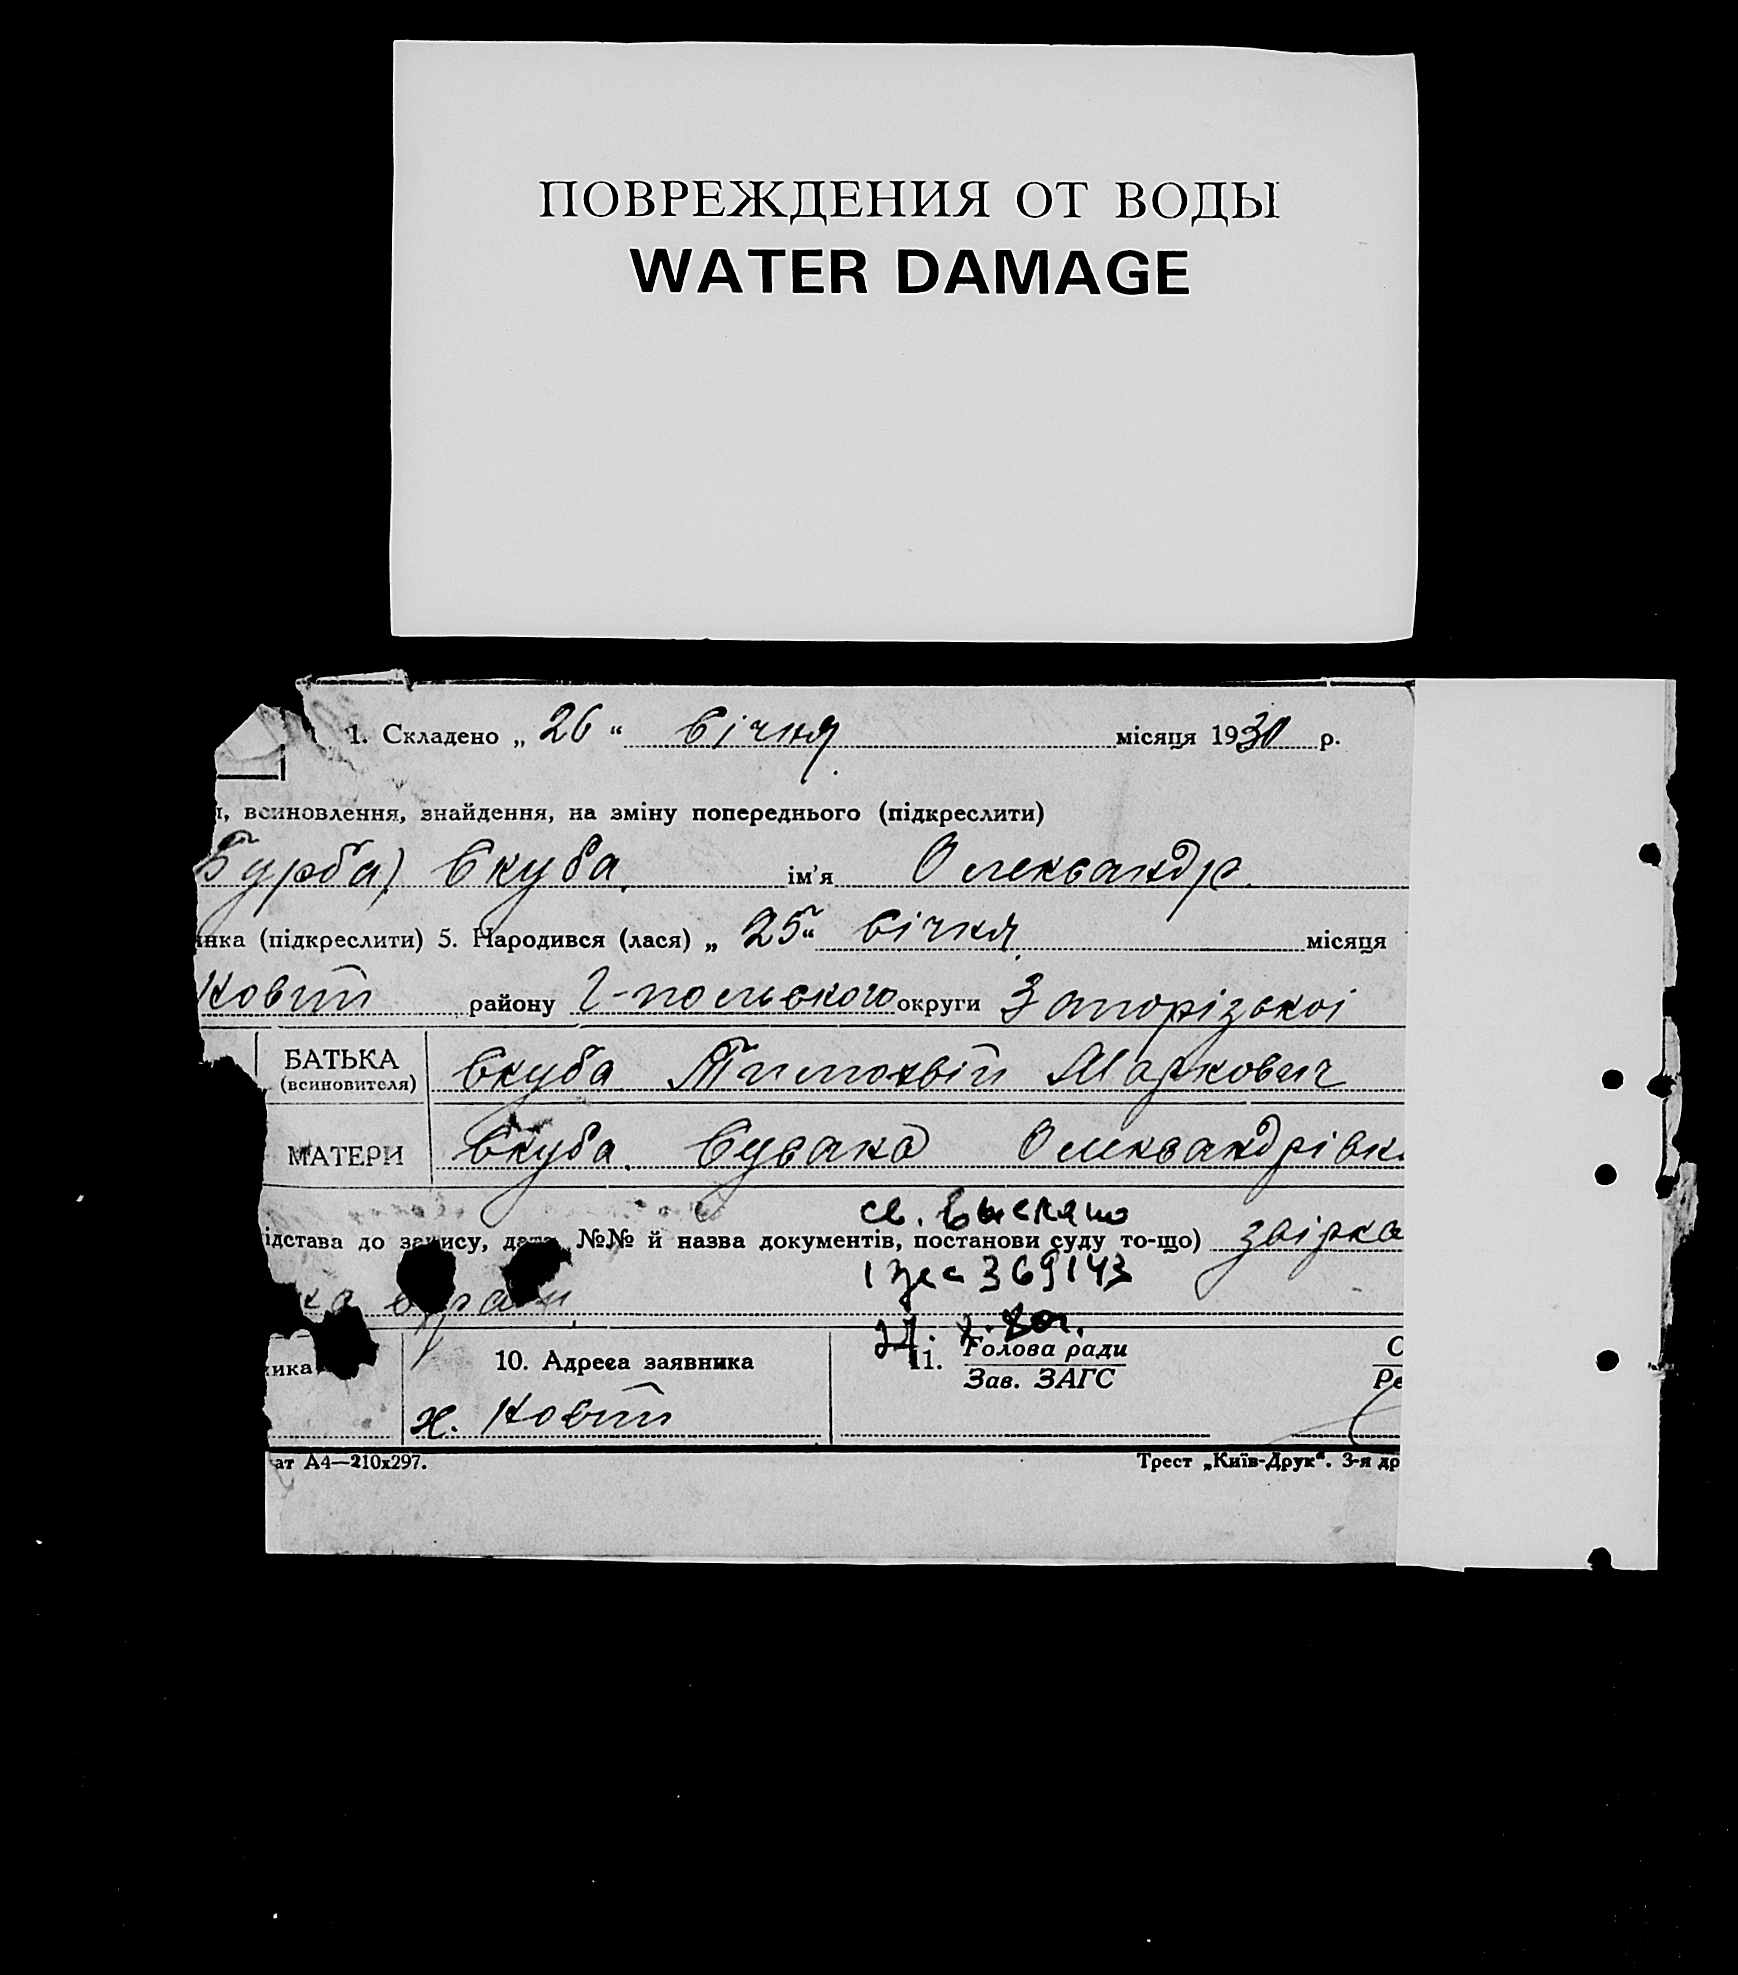 ПОВРЕЖДЕНИЯ ОТ ВОДЫ
WATER DAMAGE
1. Складено „ 26 “ Січня місяця 1930 р.
, всиновлення, знайдення, на зміну попереднього (підкреслити)
Бурба) Скуба ім'я Олександр
инка (підкреслити) 5. Народився (лася) „ 25 “ Січня місяця
Новий району Г-польского округи Запорізскоі
БАТЬКА Скуба Тимохвій Маркович
(всиновителя)
МАТЕРИ Скуба Сусана Олександрівн
св. выслано
ідстава до запису, дата, №№ й назва документів, постанови суду то-що)
369143
10. Адреса заявника 11. Голова ради
Зав. ЗАГС
х. Новий
ат А4—210х297. Трест „Київ-Друк“. 3-я др